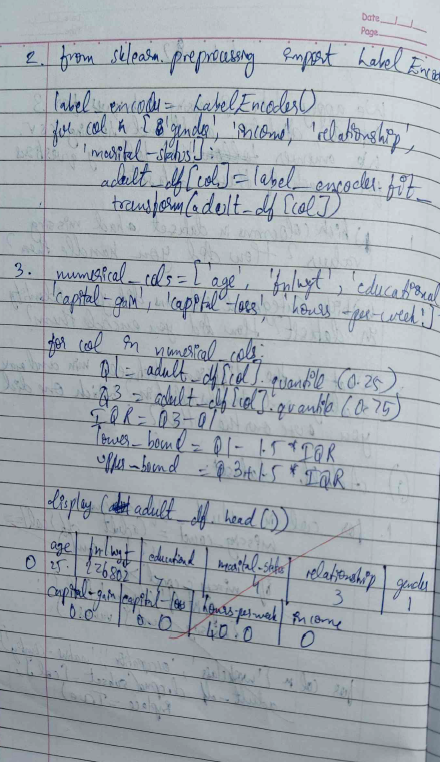 Date
Page
2. from sklearn.preprocessing import Label Enco
label_encoder = LabelEncoder()
for col in ['gender', 'income', 'relationship',
'marital-status']:
adult_df[col] = label_encoder.fit_
transform(adult_df[col])
3. numerical_cols = ['age', 'fnlwgt', 'educational
'capital-gain', 'capital-loss', 'hours-per-week']
for col in numerical_cols:
Q1 = adult_df[col].quantile(0.25)
Q3 = adult_df[col].quantile(0.75)
IQR = Q3-Q1
lower_bound = Q1 - 1.5 * IQR
upper_bound = Q3+1.5 * IQR.
display(adult_df.head(1))
age | fnlwgt | educational | marital-status | relationship | gender
0 25. 226802 7 4 3 1
capital-gain | capital-loss | hours-per-week | income
0.0 0.0 40.0 0